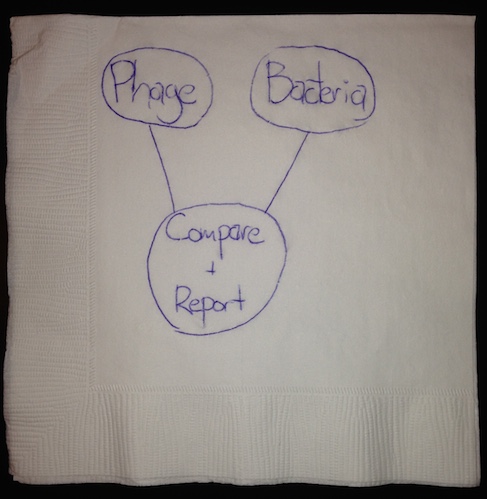 Phage
Bacteria
Compare
+
Report